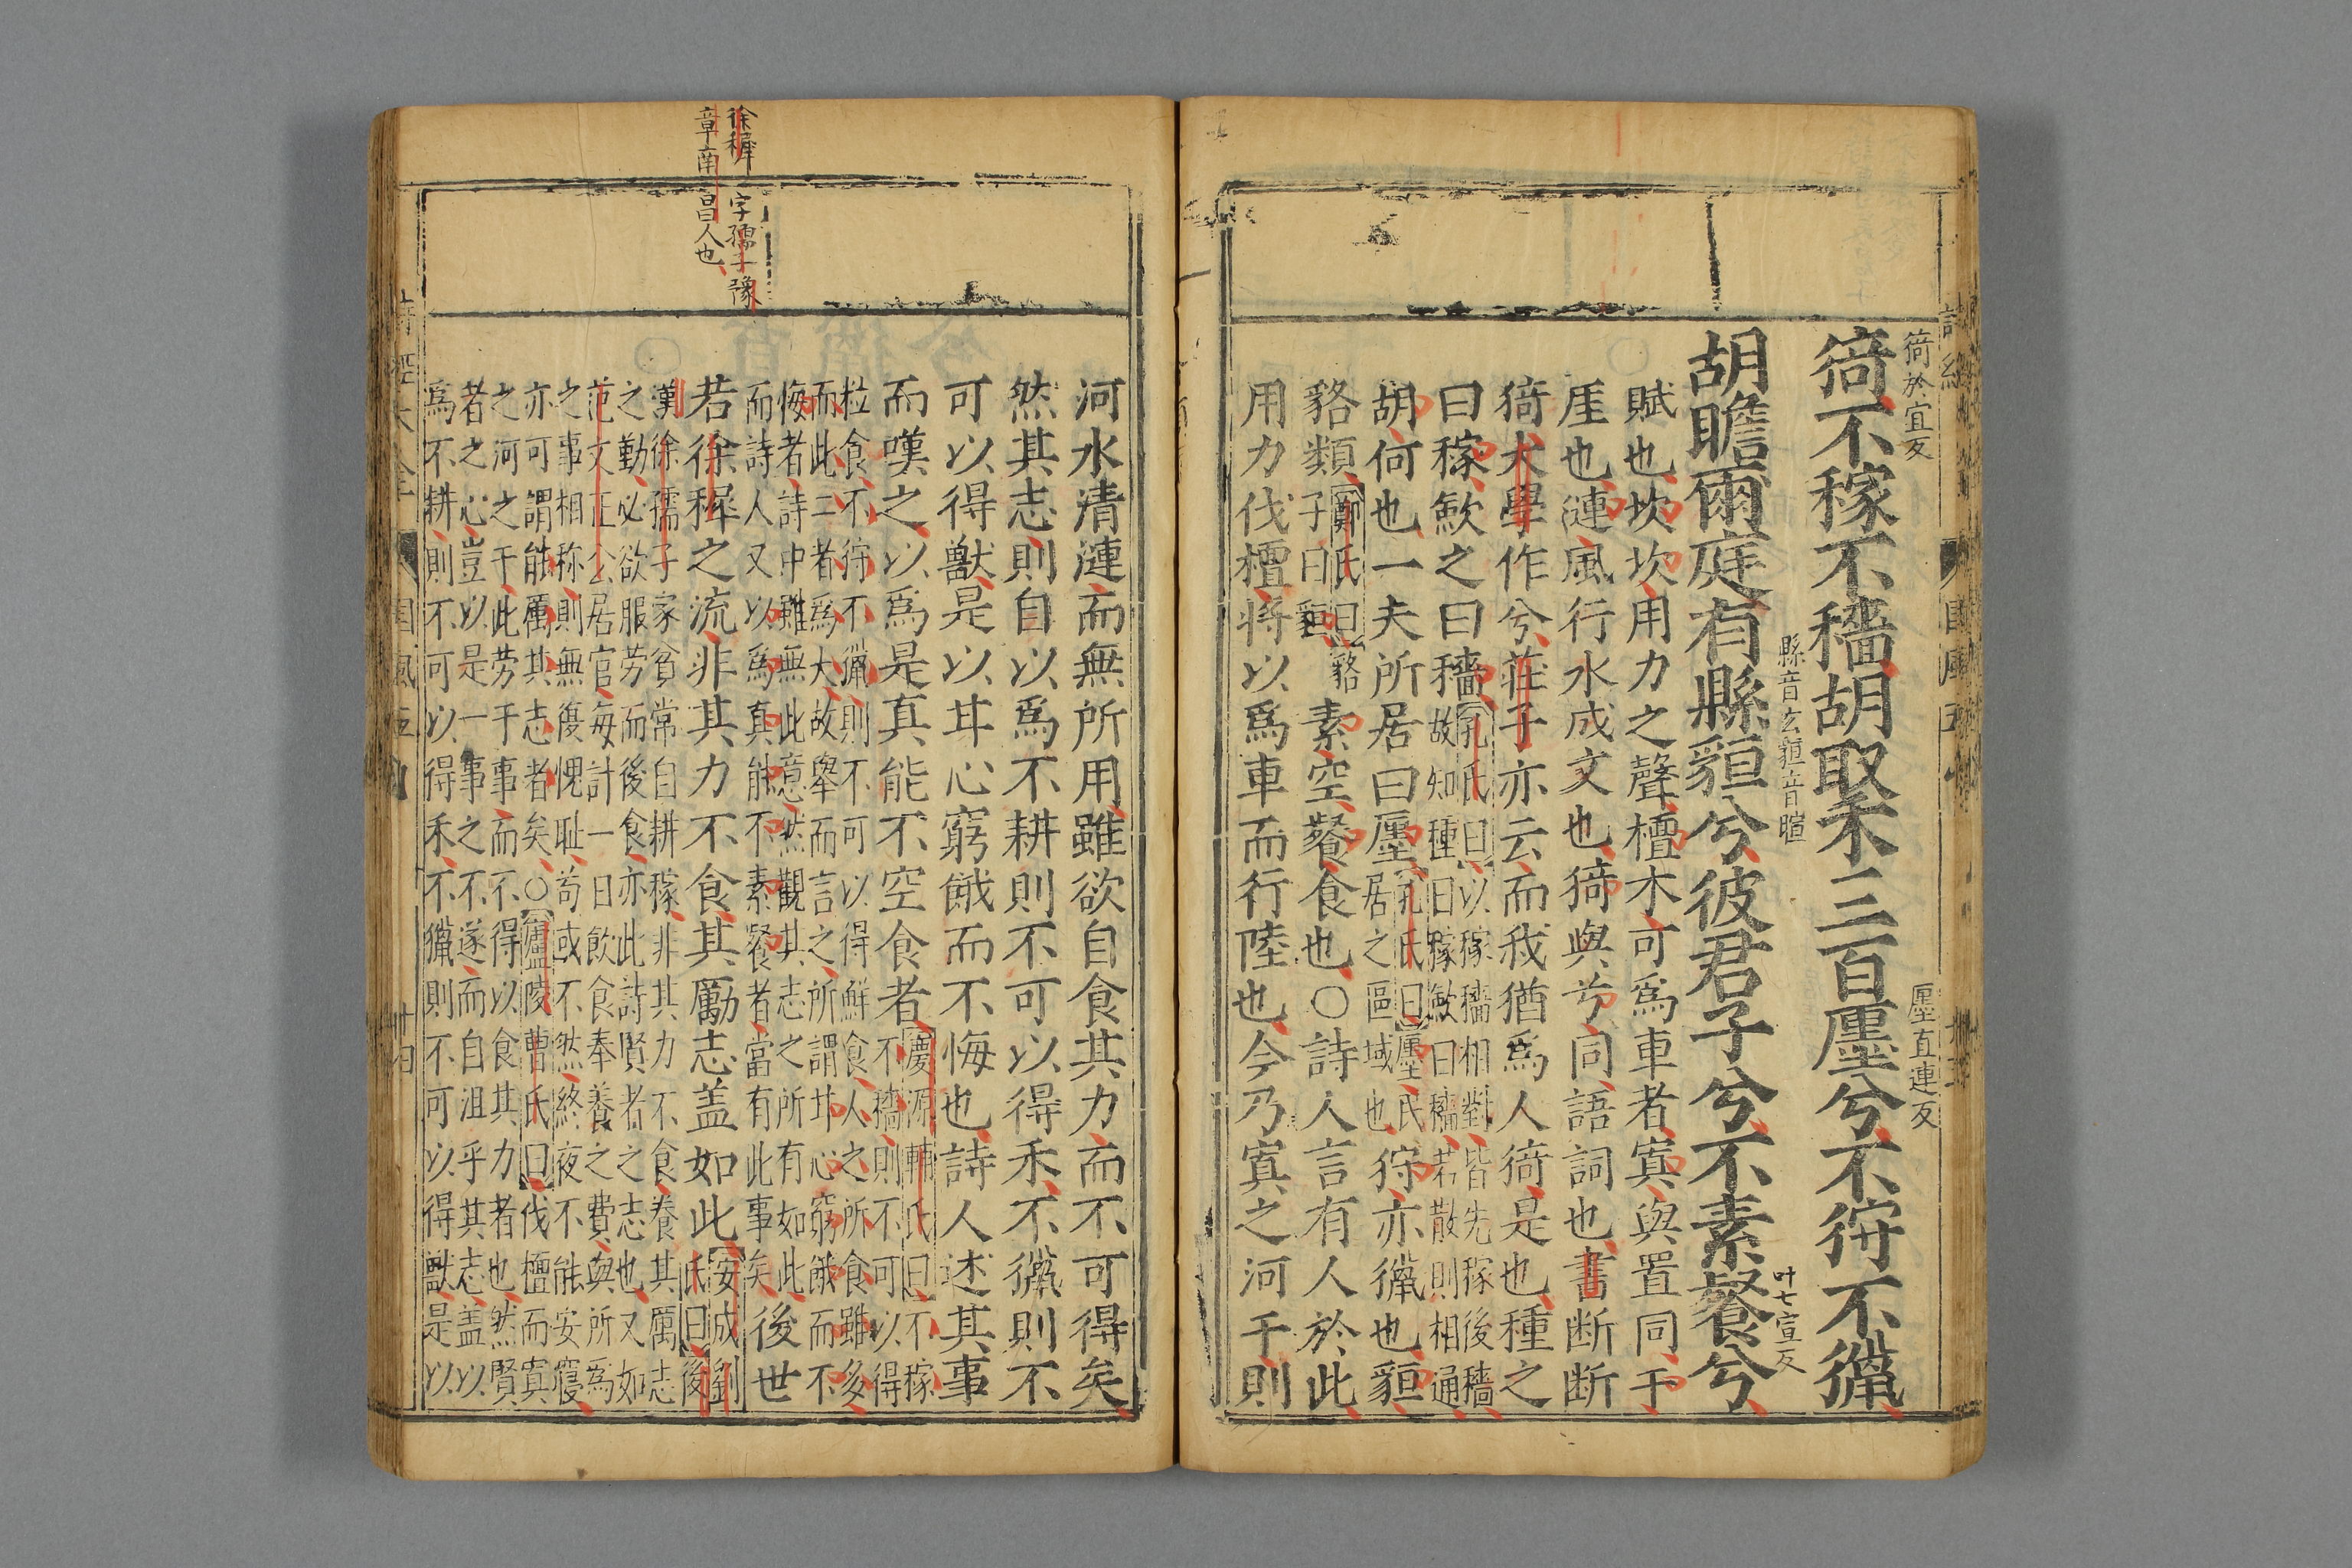 猗於宜反
廛直連反
猗不稼不穡胡取禾三百廛兮不狩不獵
縣音玄貆音暄
叶七宣反
胡瞻爾庭有縣貆兮彼君子兮不素餐兮
賦也坎坎用力之聲檀木可爲車者寘與置同干
厓也漣風行水成文也猗與兮同語詞也書断断
猗大學作兮莊子亦云而我猶爲人猗是也種之
曰稼斂之曰穡
孔氏曰以稼穡相對皆先稼後穡
故知種曰稼斂曰穡若散則相通
胡何也一夫所居曰廛
孔氏曰廛民
居之區域也
狩亦獵也貆
貉類
鄭氏曰貉
子曰貆
素空餐食也○詩人言有人於此
用力伐檀將以爲車而行陸也今乃寘之河干則
河水清漣而無所用雖欲自食其力而不可得矣
然其志則自以爲不耕則不可以得禾不獵則不
可以得獸是以甘心窮餓而不悔也詩人述其事
而嘆之以爲是真能不空食者
慶源輔氏曰不稼
不穡則不可以得
粒食不狩不獵則不可以得鮮食人之所食雖多
而此二者爲大故舉而言之所謂甘心窮餓而不
悔者詩中雖無此意然觀其志之所有如此
而詩人又以爲真能不素餐者當有此事矣
後世
若徐穉之流非其力不食其勵志盖如此
安成劉
氏曰後
漢徐孺子家貧常自耕稼非其力不食養其厲志
之勤必欲服劳而後食亦此詩賢者之志也又如
范文正公居官每計一日飲食奉養之費與所爲
之事相称則無復愧耻苟或不然終夜不能安寢
亦可謂能厲其志者矣○廬陵曹氏曰伐檀而寘
之河之干此劳于事而不得以食其力者也然賢
者之心豈以是一事之不遂而自沮乎其志盖以
爲不耕則不可以得禾不獵則不可以得獸是以
徐穉字孺子豫
章南昌人也